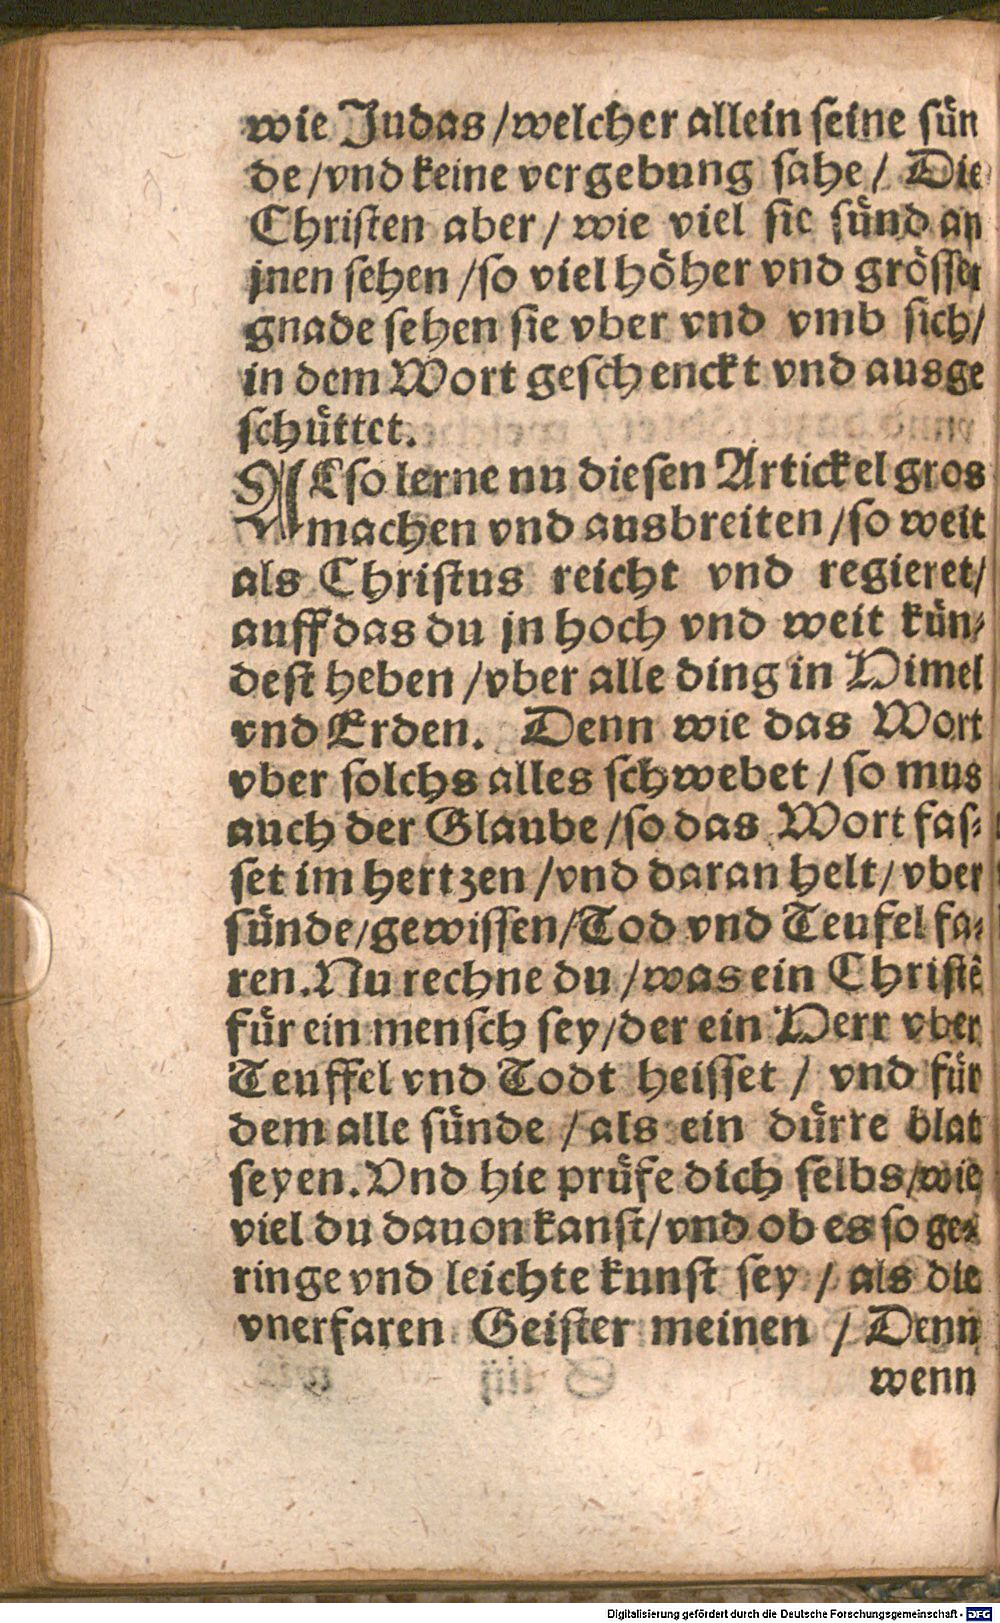 wie Judas /welcher allein seine sün
de /vnd keine vergebung sahe / Die
Christen aber / wie viel sie sünd an
jnen sehen /so viel höher vnd grösser
gnade sehen sie vber vnd vmb sich/
in dem Wort geschenckt vnd ausge
schüttet.
ALso lerne nu diesen Artickel gros
machen vnd ausbreiten /so weit
als Christus reicht vnd regieret/
auff das du jn hoch vnd weit kün⸗
dest heben /vber alle ding in Himel
vnd Erden. Denn wie das Wort
vber solchs alles schwebet / so mus
auch der Glaube /so das Wort fas⸗
set im hertzen /vnd daran helt/ vber
sünde/gewissen/Tod vnd Teufel fa⸗
ren. Nu rechne du /was ein Christē
für ein mensch sey/der ein Herr vber
Teuffel vnd Todt heisset / vnd für
dem alle sünde /als ein dürre blat
seyen. Vnd hie prüfe dich selbs/wie
viel du dauon kanst/vnd ob es so ge⸗
ringe vnd leichte kunst sey / als die
vnerfaren Geister meinen / Denn
wenn
Digitalisierung gefördert durch die Deutsche Forschungsgemeinschaft - DFG